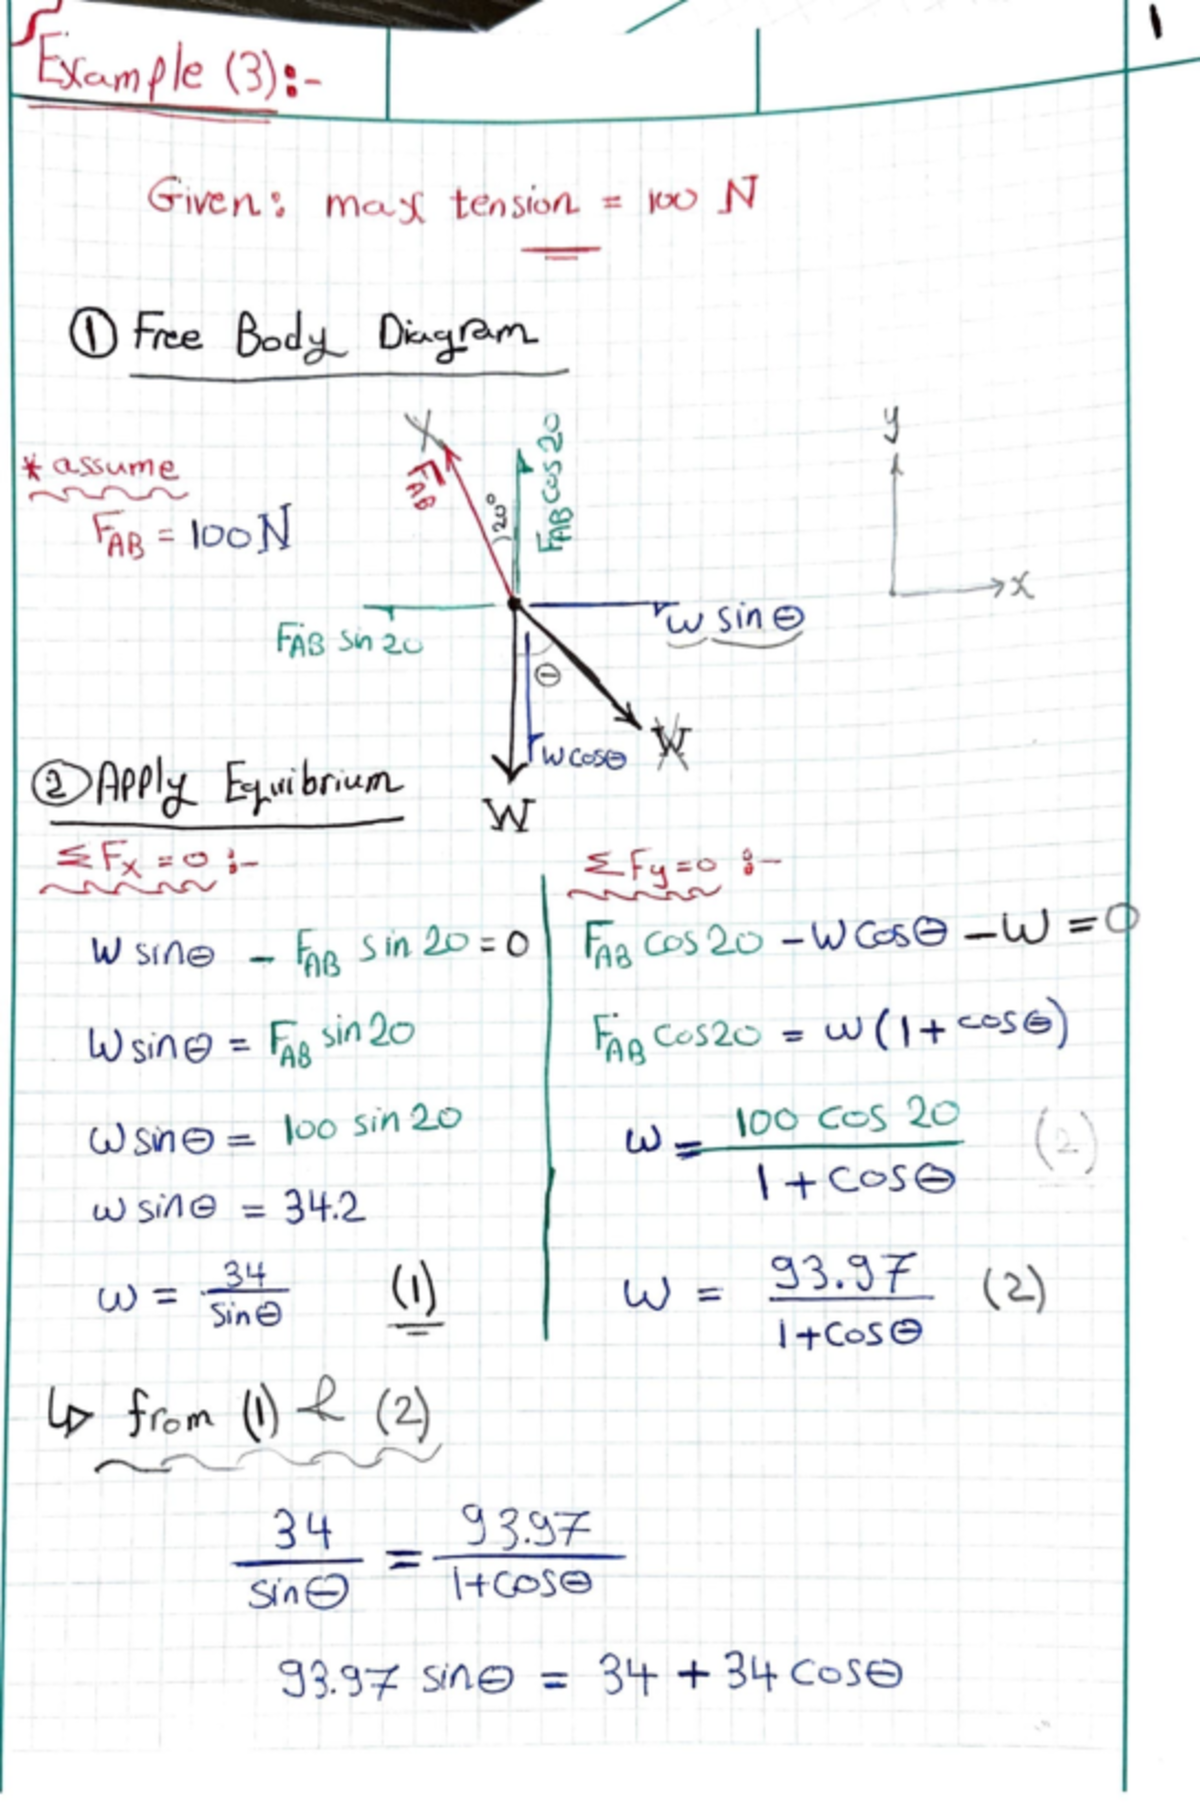 1
Example (3):-
Given: max tension = 100 N
① Free Body Diagram
* assume
F_AB = 100 N
F_AB
20°
F_AB cos 20
y
x
F_AB sin 20
W sin θ
θ
W cos θ
W
W
② Apply Equibrium
Σ Fx = 0 :-
W sin θ - F_AB sin 20 = 0
W sin θ = F_AB sin 20
W sin θ = 100 sin 20
W sin θ = 34.2
W = 34 / sin θ (1)
Σ Fy = 0 :-
F_AB cos 20 - W cos θ - W = 0
F_AB cos 20 = W (1 + cos θ)
W = 100 cos 20 / 1 + cos θ (2)
W = 93.97 / 1 + cos θ (2)
↳ from (1) & (2)
34 / sin θ = 93.97 / 1 + cos θ
93.97 sin θ = 34 + 34 cos θ